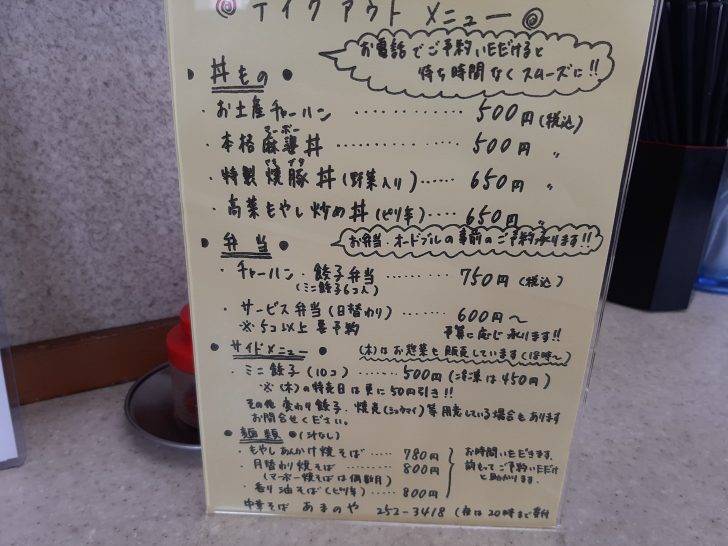 ◎ テイクアウト メニュー ◎
お電話でご予約いただけると
待ち時間なくスムーズに!!
・丼もの・
・お土産チャーハン ………… 500円(税込)
マーボー
・本格麻婆丼 ………… 500円 〃
・特製 焼豚丼(野菜入り)…… 650円 〃
・高菜もやし炒め丼(ピリ辛)…… 650円 〃
お弁当・オードブルの事前のご予約承ります!!
・弁当・
・チャーハン・餃子弁当 ……… 750円(税込)
(ミニ餃子6コ入)
・サービス弁当(日替わり) 600円〜
※5コ以上要予約 予算に応じ承ります!!
・サイドメニュー・ (木)はお惣菜も販売しています(18時〜)
・ミニ餃子(10コ) …… 500円(冷凍は450円)
※(木)の特売日は更に50円引き!!
その他 変わり餃子・焼売(シュウマイ)等用意している場合もあります
お問合せください。
・麺類・(汁なし)
・もやしあんかけ焼そば …… 780円
・月替わり焼そば …… 800円
(マーボー焼そばは偶数月)
・香り油そば(ピリ辛) …… 800円
お時間いただきます。
前もってご予約いただけ
と助かります。
中華そば あまのや 252-3418 (夜は20時まで受付